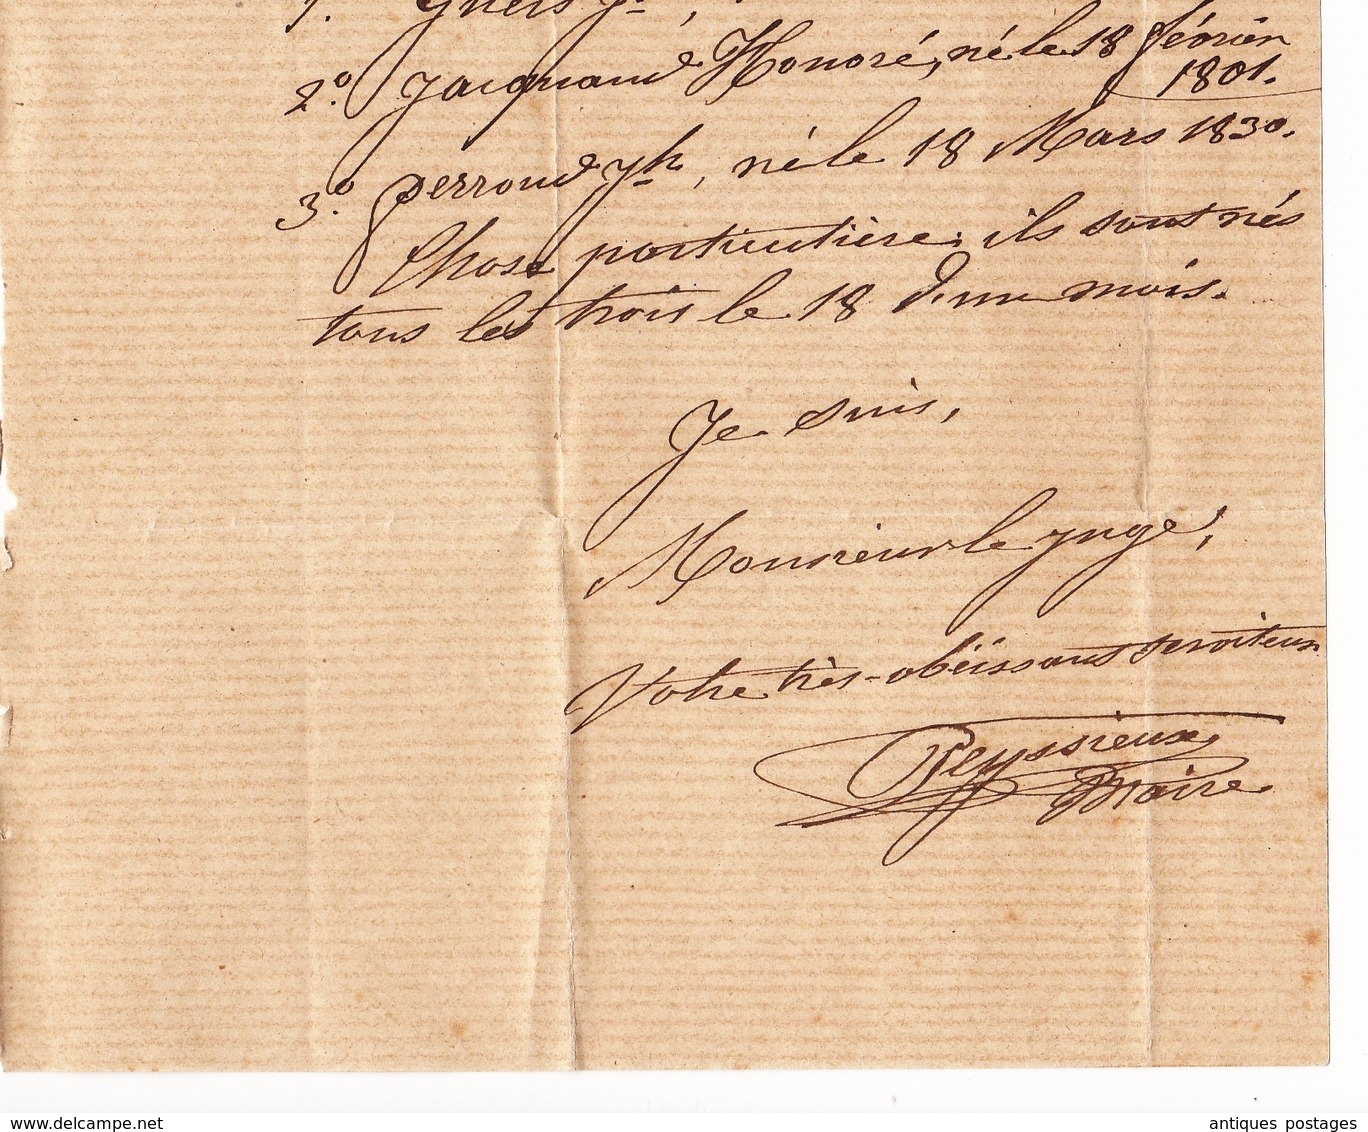 2.° Jacquand Honoré, né le 18 février
1801.
3.° Perroud Jh, né le 18 Mars 1830.
Chose particulière, ils sont nés
tous les trois le 18 d'un mois.
Je suis,
Monsieur le juge,
Votre très-obéissant serviteur
Peyssieux
Maire
www.delcampe.net
antiques postages